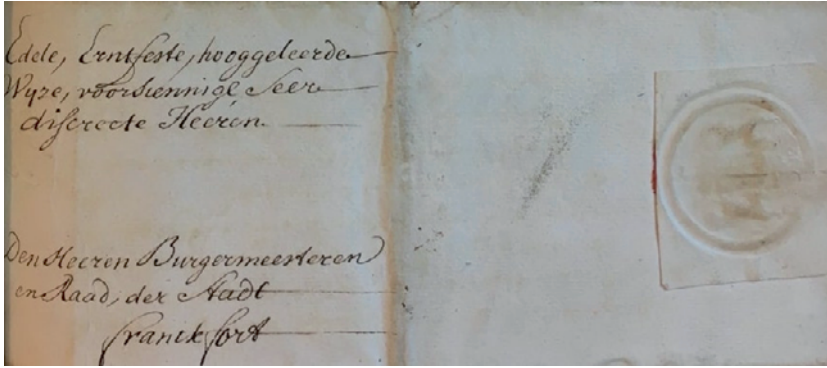 Edele, Erntfeste, hooggeleerde
Wyze, voorsiennige Seer
discreete Heeren
Den Heeren Burgermeesteren
en Raad, der Stadt
Franckfort